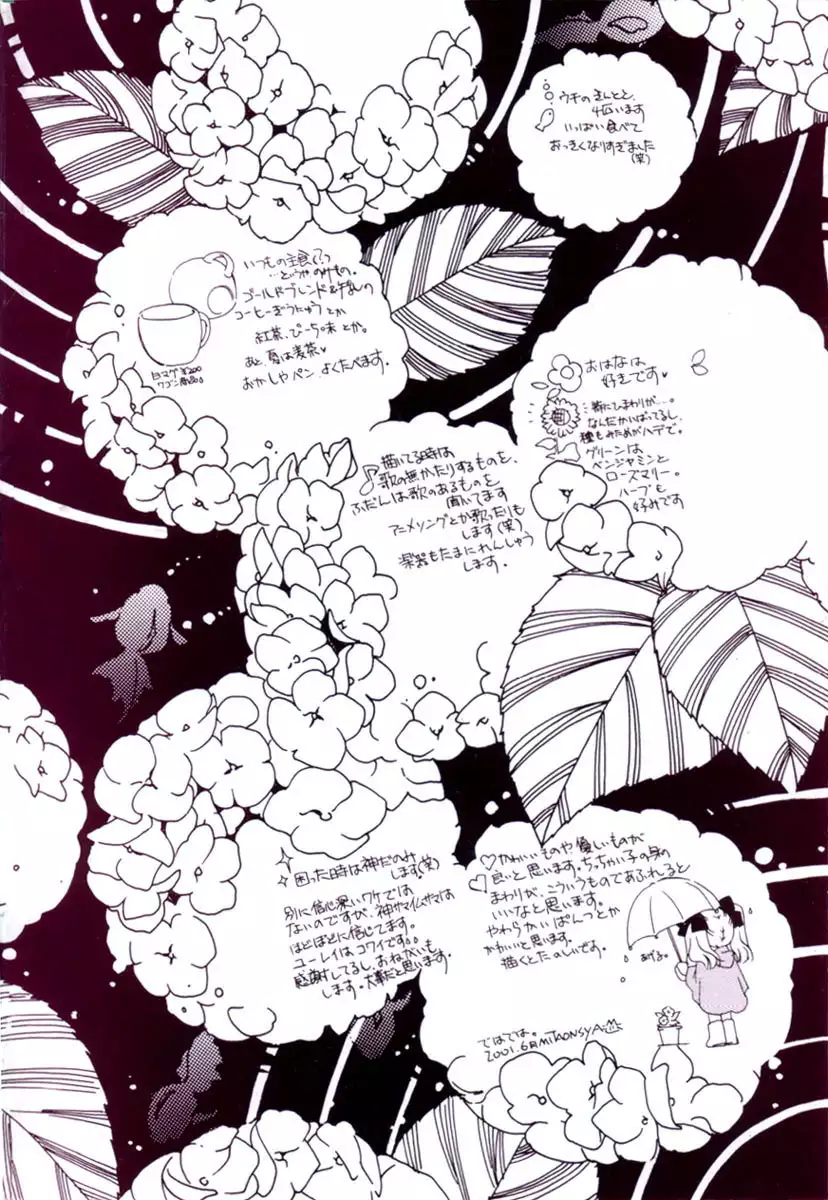 ウチの きんとと、
4匹います
いっぱい食べて
おっきくなりすぎました
(笑)
いつもの主食(?)っ
…というやのみもの。
ゴールドブレンド&すなしの
コーヒーぎうにゅうとか
紅茶、ぴーち味とか。
あと、夏は麦茶♥
おかしやパン、よくたべます。
白マグ ¥200
ワゴン
おはなは
好きです♥
…特にひまわりが…。
なんだかいばってるし、
種もみためがハデで。
グリーンは
ベンジャミンと
ローズマリー。
ハーブも
好めです
♪描いてる時は
歌の無かたりするものを、
ふだんは歌のあるものを
聞いてます
アニメソングとか歌ったりも
します(笑)
楽器もたまにれんしゅう
します。
困った時は神だのみ
します(笑)
別に信心深いワケでは
ないのですが、神サマイムサマは
ほどほどに信じてます。
ユーレイはコワイです。
感謝してるし、おねがいも
します。大事だと思います。
♡かわいいものや優しいものが
♡良いと思います。ちっちゃい子の身の
まわりが、こういうものであふれると
いいなと思います。
やわらかいぱんつとか
かわいいと思います。
描くとたのしいです。
あげる。
ではでは。
2001.6月 MITHONSYA